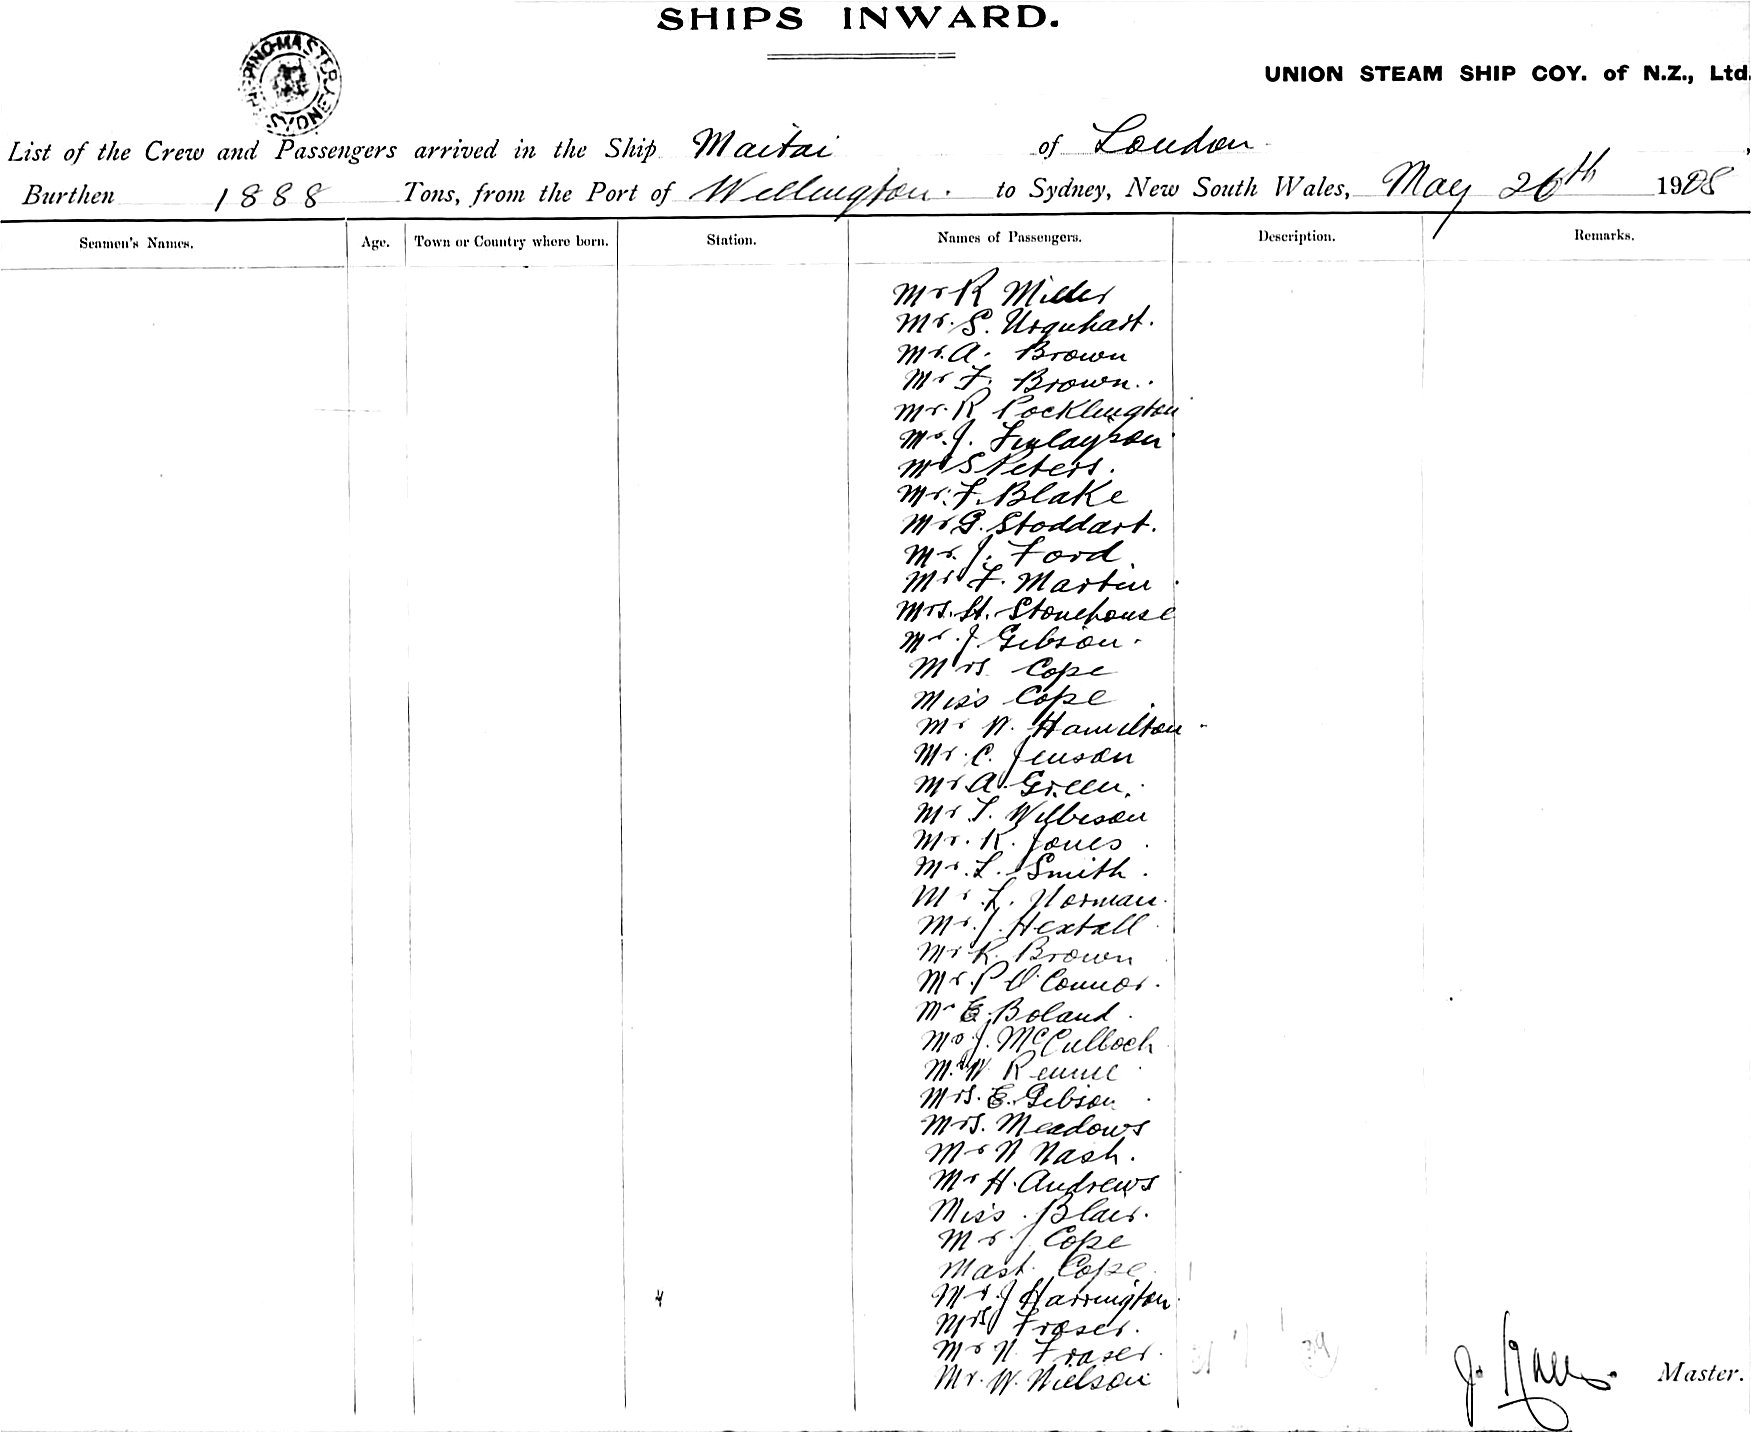 SHIPS INWARD.
UNION STEAM SHIP COY. of N.Z., Ltd.
SHIPPING MASTER SYDNEY
List of the Crew and Passengers arrived in the Ship Maitai of London,
Burthen 1888 Tons, from the Port of Wellington. to Sydney, New South Wales, May 26th 1908
Seamen's Names. Age. Town or Country where born. Station. Names of Passengers. Description. Remarks.
Mr R Miller
Mr. S. Urquhart.
Mr. A. Brown
Mr F. Brown.
Mr. R Pocklington
Mr. J. Finlayson
Mr S Peters.
Mr. F. Blake
Mr G. Stoddart.
Mr. J. Ford
Mr F. Martin
Mrs. St. Stonehouse
Mr. J Gibson.
Mrs Cope
Miss Cope
Mr W. Hamilton
Mr. C. Jenson
Mr A. Green.
Mr T. Wilbeson
Mr. R. Jones
Mr. L. Smith.
Mr L. Norman.
Mr. J. Hextall
Mr R. Brown
Mr. P O'Connor.
Mr E. Boland.
Mr J. McCulloch
Mr W Rennie
Mrs. E. Gibson
Mrs. Meadows
Mr N Nash.
Mr H. Andrews
Miss Blair.
Mr. J Cope
Mast. Cope
Mr. J Harrington
Mrs Fraser.
Mr N. Fraser.
Mr. W. Nielson
J. Master.